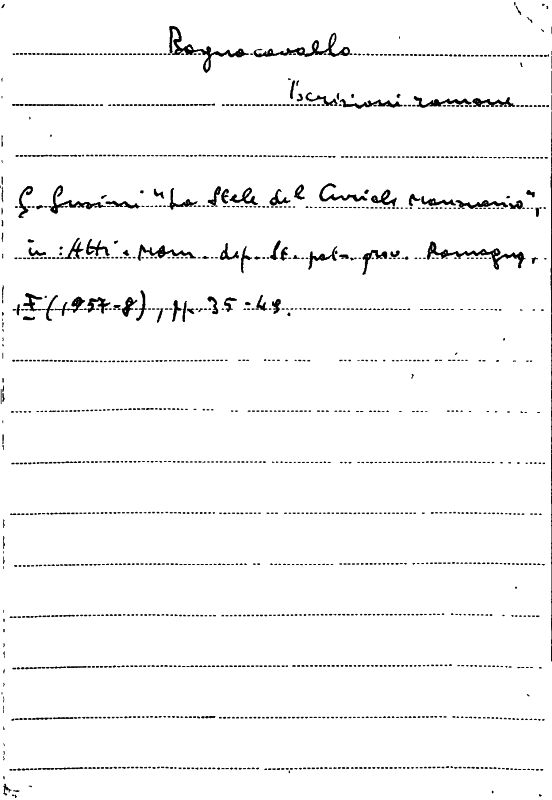 Bagnacavallo
Iscrizioni romane
G. Susini "La Stele del Curiale Marzanio",
in: Atti e Mem. dep. St. pat. prov. Romagna,
X (1957-8), pp. 35-49.